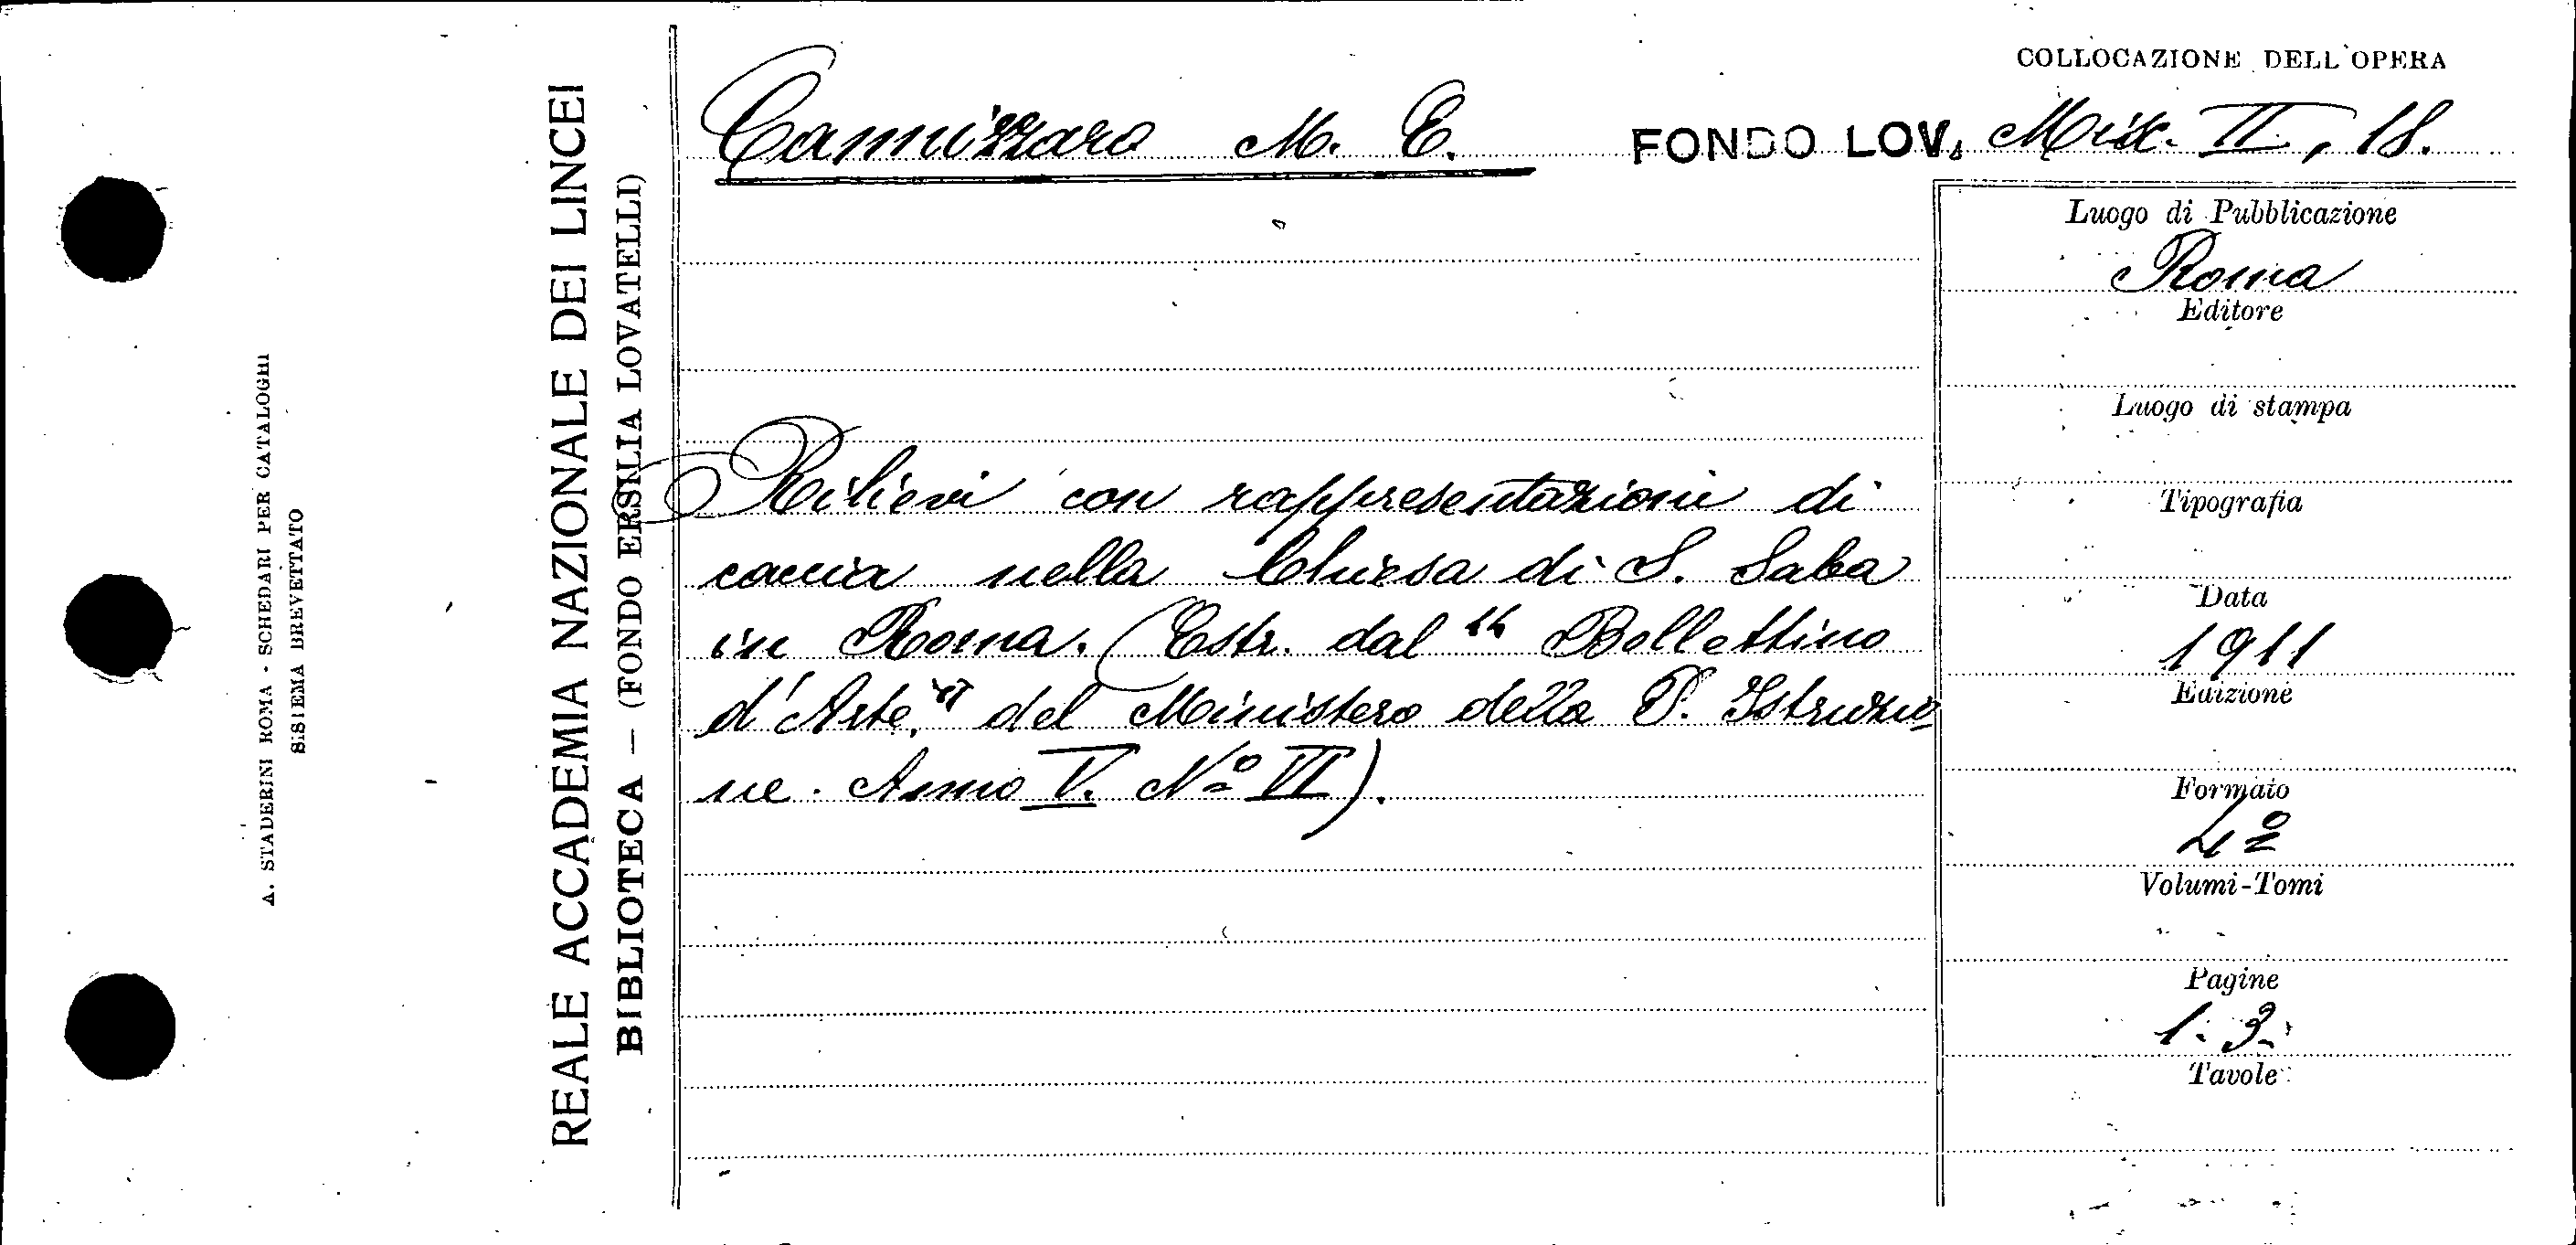 A. STADERINI ROMA - SCHEDARI PER CATALOGHI
SISTEMA BREVETTATO
REALE ACCADEMIA NAZIONALE DEI LINCEI
BIBLIOTECA — (FONDO ERSILIA LOVATELLI)
COLLOCAZIONE DELL'OPERA
Cannizzaro M. E. FONDO LOV. Misc. II, 18.
Luogo di Pubblicazione
Roma
Editore
Luogo di stampa
Tipografia
Data
1911
Edizione
Formato
4º
Volumi-Tomi
Pagine
1-3
Tavole
Rilievi con rappresentazioni di
caccia nella Chiesa di S. Saba
in Roma. (Estr. dal "Bollettino
d'Arte," del Ministero della P. Istruzio
ne. Anno V. Nº VI).